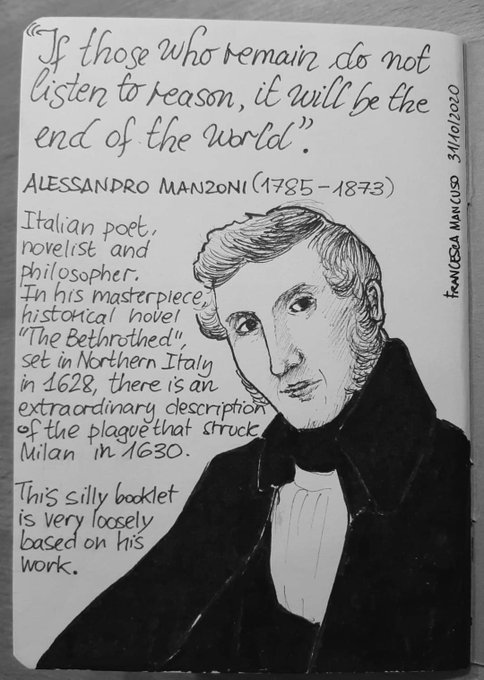 "If those who remain do not
listen to reason, it will be the
end of the world".
ALESSANDRO MANZONI (1785-1873)
Italian poet,
novelist and
philosopher.
In his masterpiece,
historical novel
"The Bethrothed",
set in Northern Italy
in 1628, there is an
extraordinary description
of the plague that struck
Milan in 1630.
This silly booklet
is very loosely
based on his
work.
FRANCESCA MANCUSO 31/10/2020